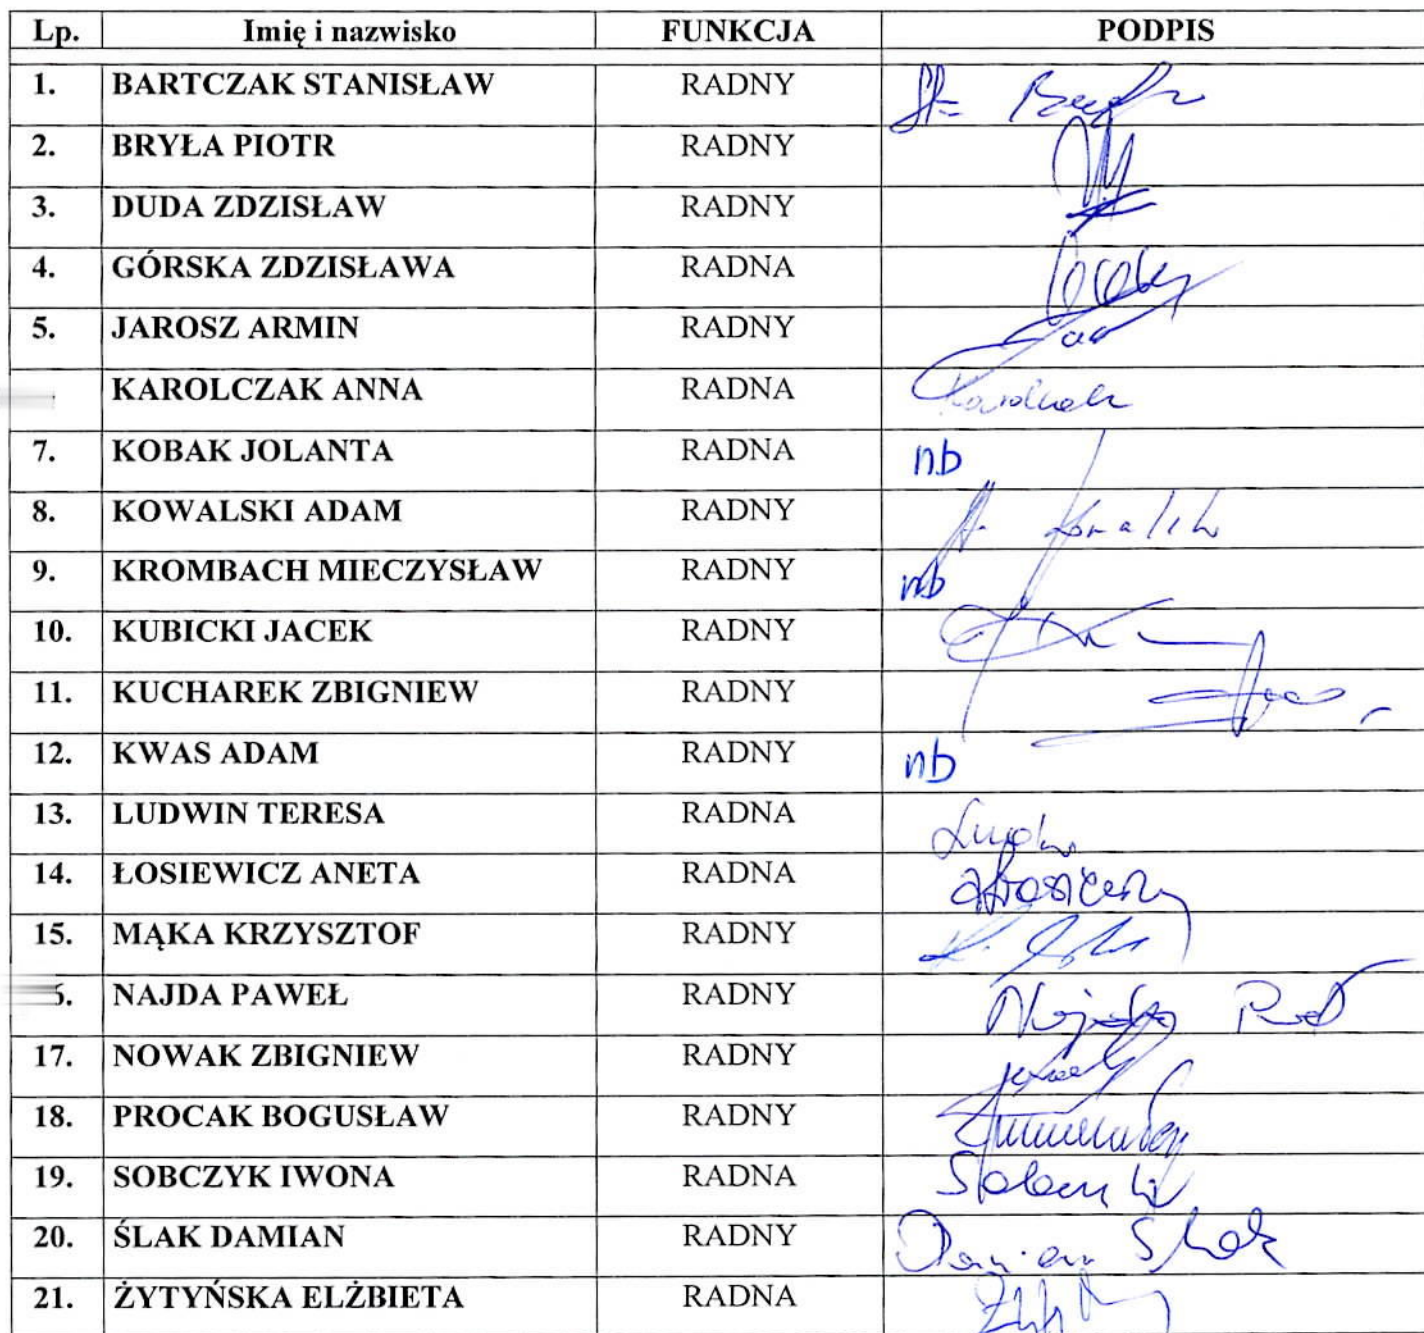 Lp. Imię i nazwisko FUNKCJA PODPIS
1. BARTCZAK STANISŁAW RADNY
2. BRYŁA PIOTR RADNY
3. DUDA ZDZISŁAW RADNY
4. GÓRSKA ZDZISŁAWA RADNA
5. JAROSZ ARMIN RADNY
KAROLCZAK ANNA RADNA
7. KOBAK JOLANTA RADNA nb
8. KOWALSKI ADAM RADNY
9. KROMBACH MIECZYSŁAW RADNY nb
10. KUBICKI JACEK RADNY
11. KUCHAREK ZBIGNIEW RADNY
12. KWAS ADAM RADNY nb
13. LUDWIN TERESA RADNA
14. ŁOSIEWICZ ANETA RADNA
15. MĄKA KRZYSZTOF RADNY
NAJDA PAWEŁ RADNY
17. NOWAK ZBIGNIEW RADNY
18. PROCAK BOGUSŁAW RADNY
19. SOBCZYK IWONA RADNA
20. ŚLAK DAMIAN RADNY Damian Ślak
21. ŻYTYŃSKA ELŻBIETA RADNA